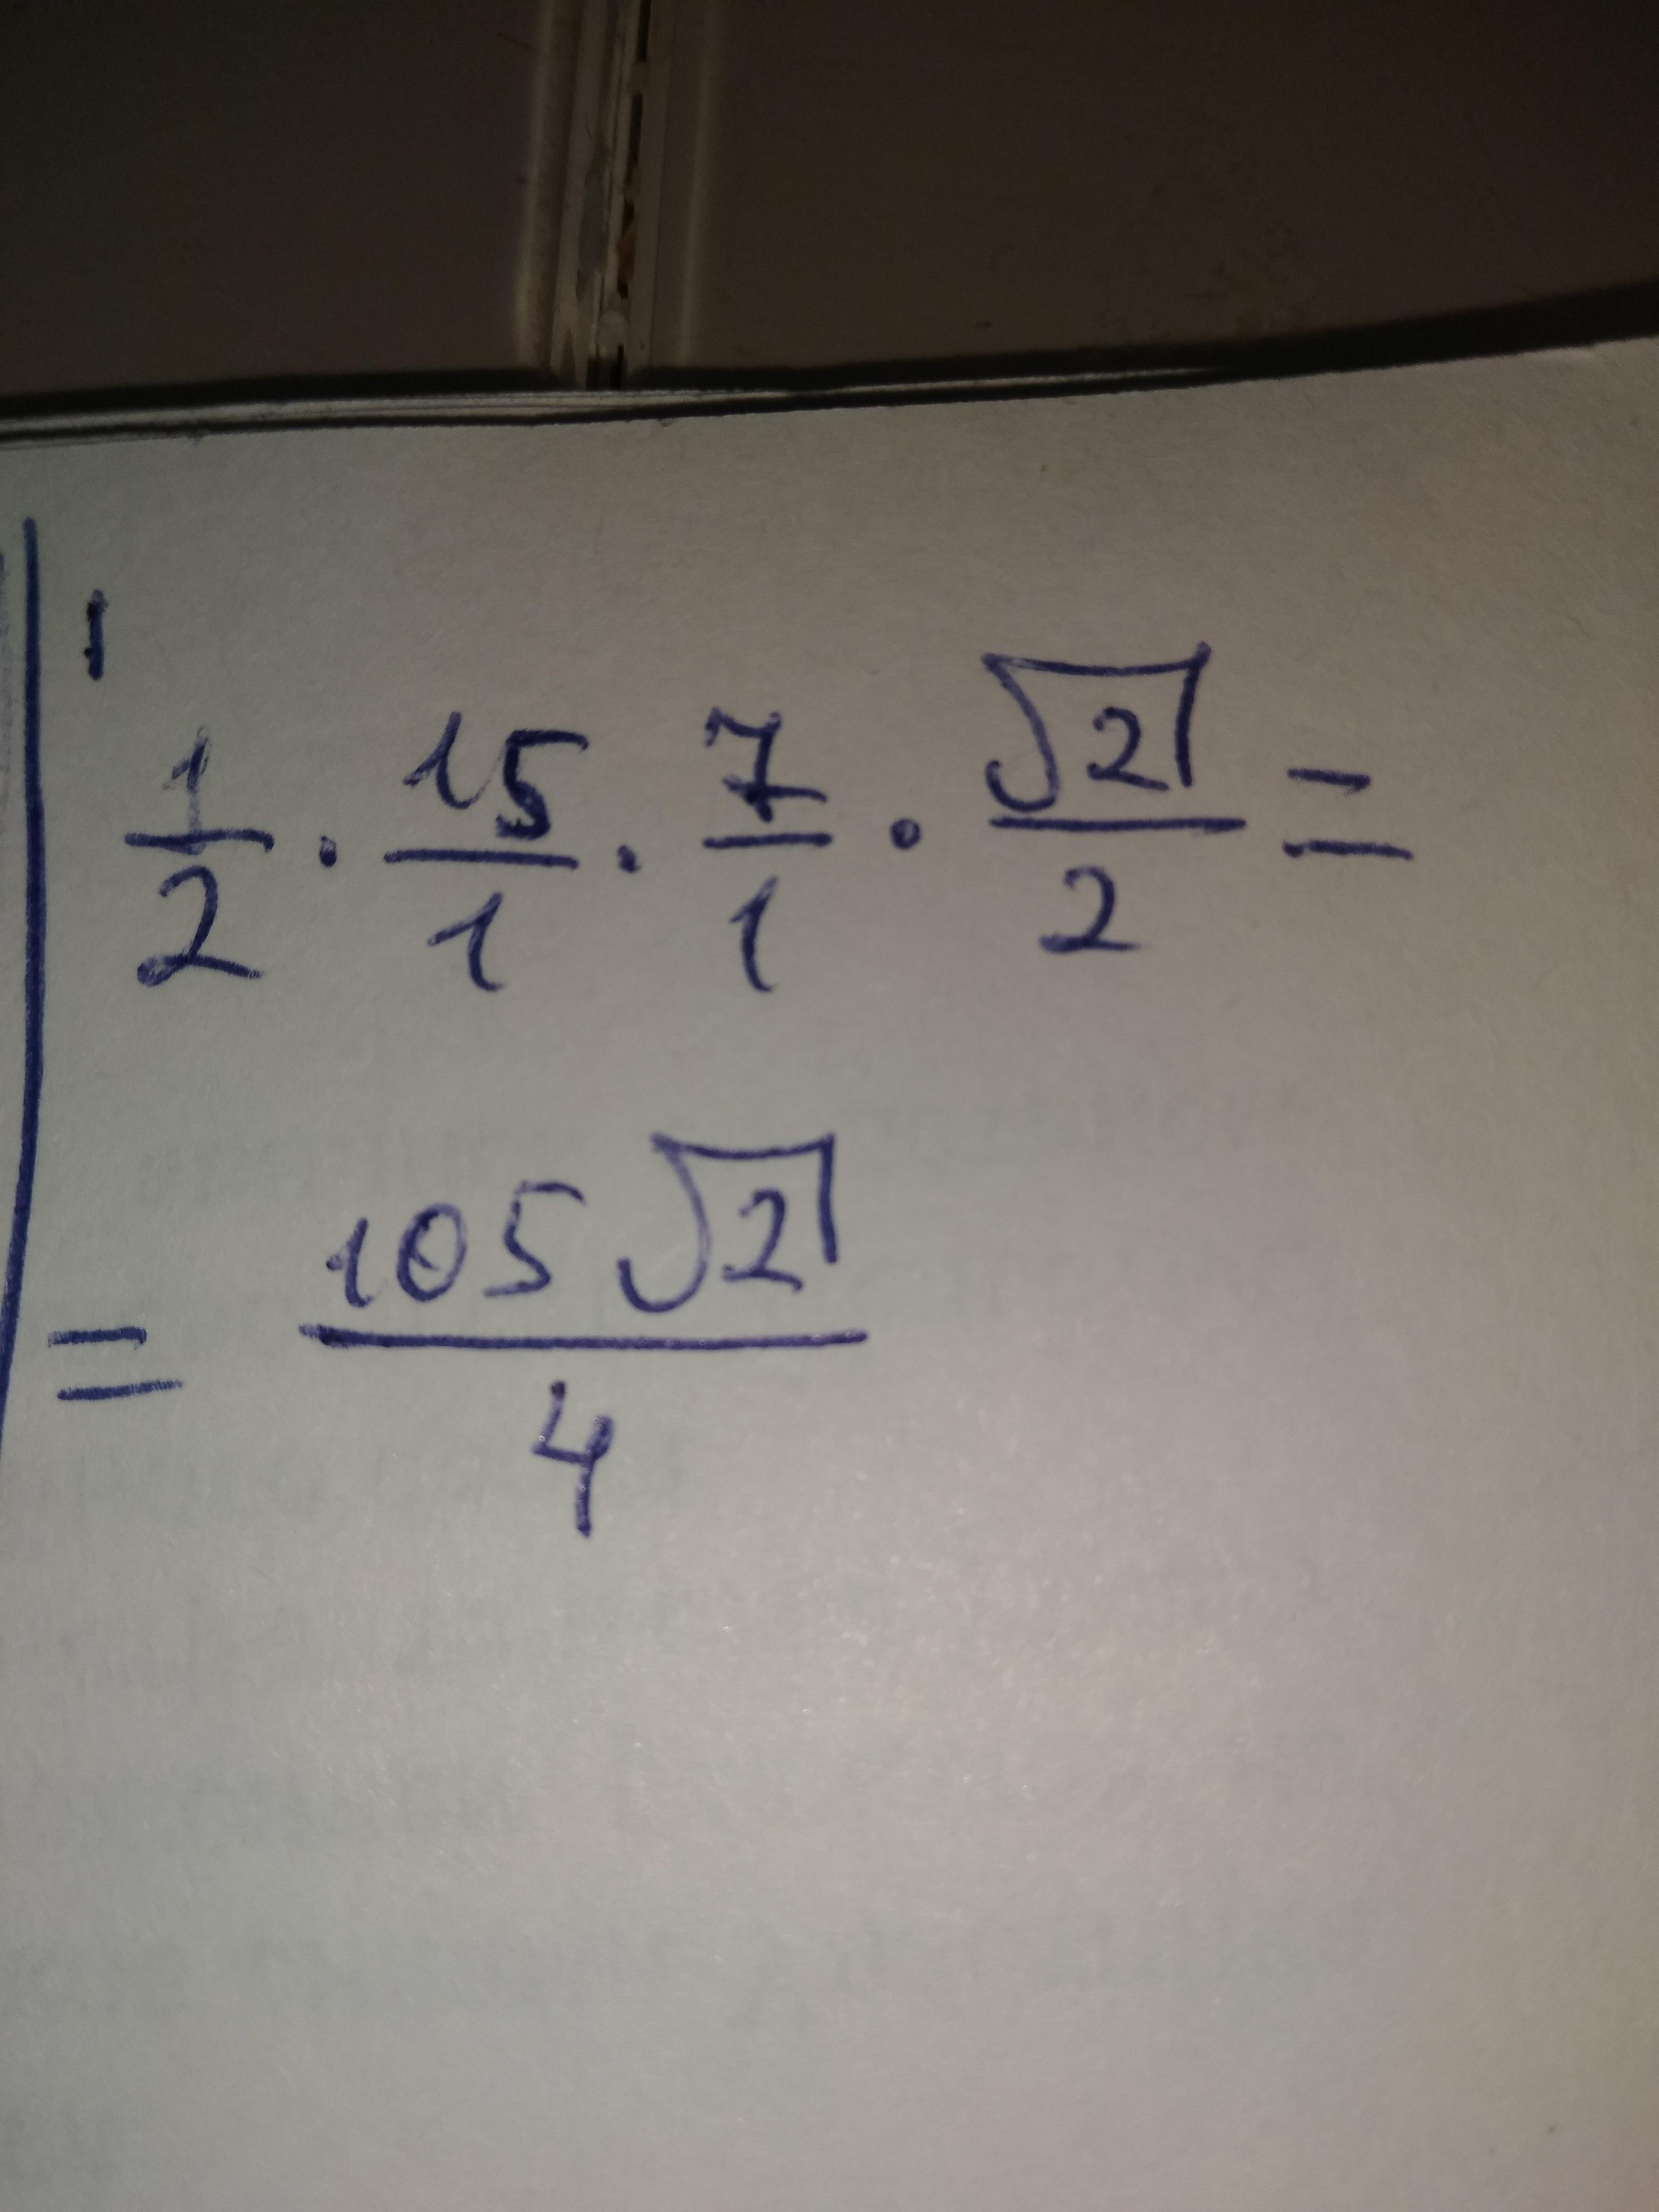 1/2 · 15/1 · 7/1 · √2/2 =
= 105√2/4